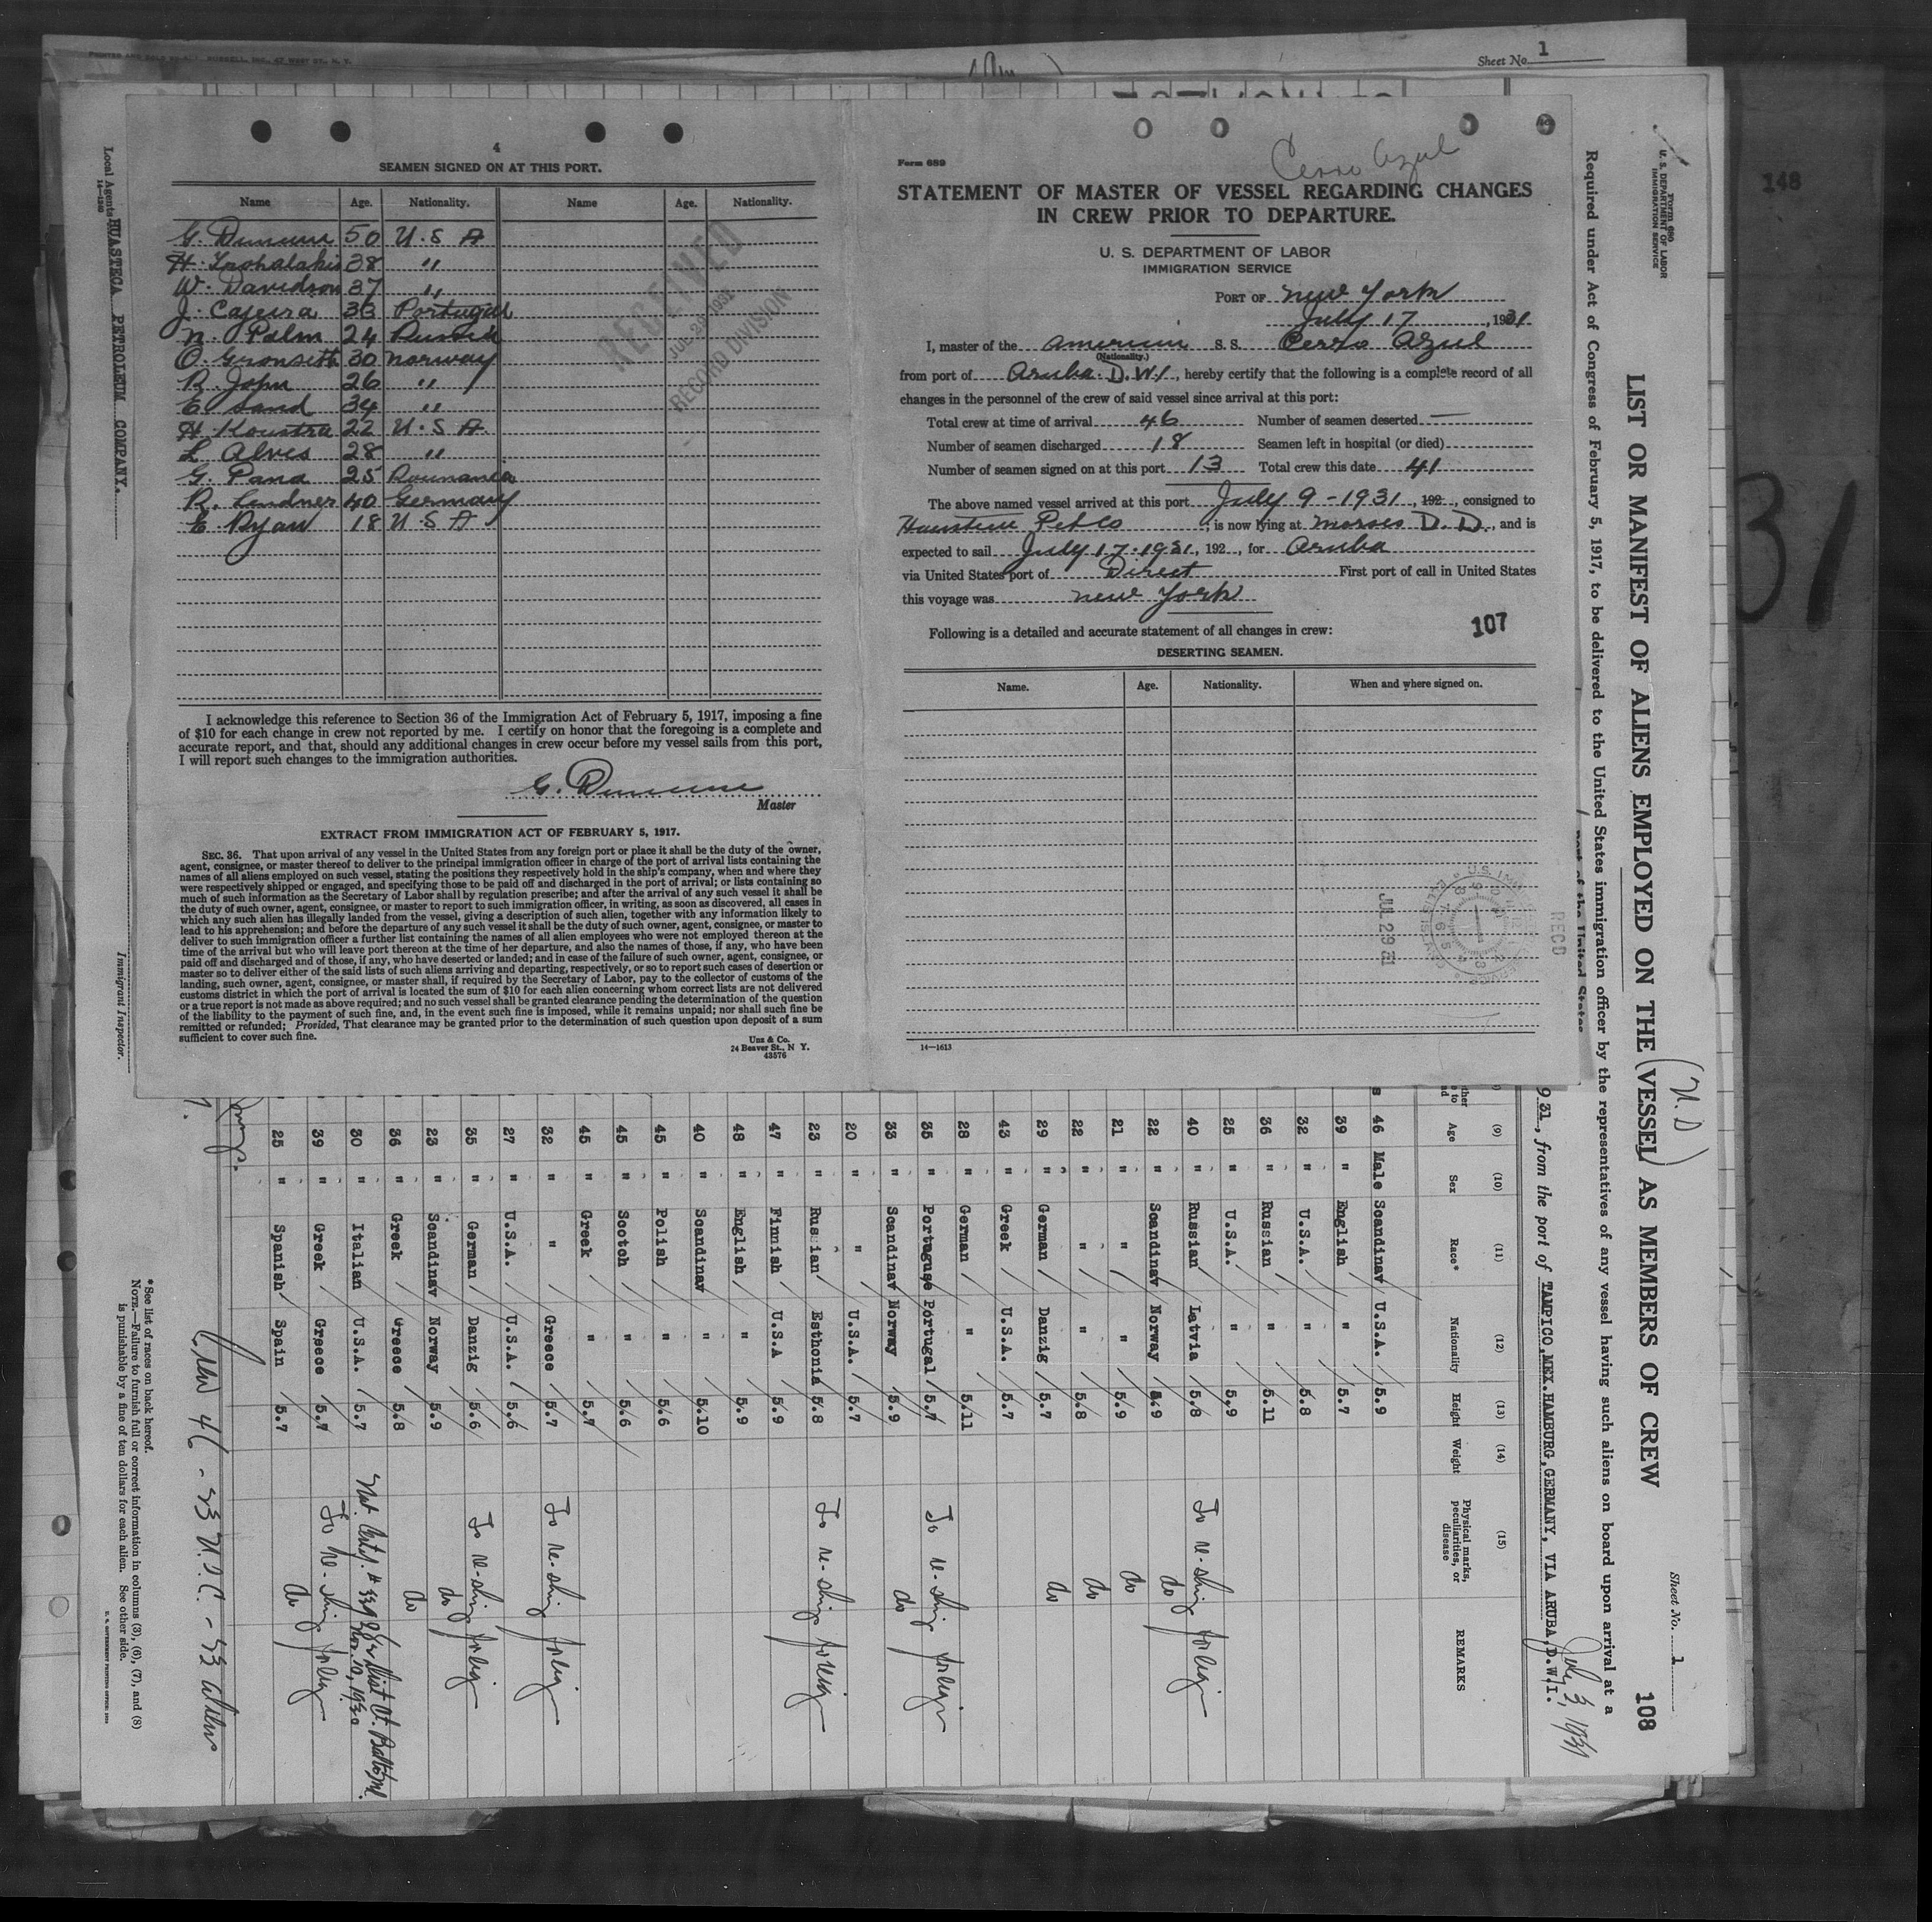 PRINTED AND SOLD BY
RUSSELL, INC., 47 WEST ST., N. Y.
Sheet No. 1
4
SEAMEN SIGNED ON AT THIS PORT.
Name Age. Nationality. Name Age. Nationality.
G. Duncan 50 U.S A
H. 38 "
W. Davidson 37 "
J. Cajeira 33 Portugal
N. Palm 24 Russia
O. 30 Norway
R. John 26 "
E. Sand 34 "
H. Koustra 22 U.S A.
L Alves 28 "
G. Pana 25 Roumania
R. Lindner 40 Germany
E. Ryan 18 U S A
RECEIVED
JUL 29 1931
RECORD DIVISION
I acknowledge this reference to Section 36 of the Immigration Act of February 5, 1917, imposing a fine
of $10 for each change in crew not reported by me. I certify on honor that the foregoing is a complete and
accurate report, and that, should any additional changes in crew occur before my vessel sails from this port,
I will report such changes to the immigration authorities.
G. Duncan
Master
EXTRACT FROM IMMIGRATION ACT OF FEBRUARY 5, 1917.
SEC. 36. That upon arrival of any vessel in the United States from any foreign port or place it shall be the duty of the owner,
agent, consignee, or master thereof to deliver to the principal immigration officer in charge of the port of arrival lists containing the
names of all aliens employed on such vessel, stating the positions they respectively hold in the ship's company, when and where they
were respectively shipped or engaged, and specifying those to be paid off and discharged in the port of arrival; or lists containing so
much of such information as the Secretary of Labor shall by regulation prescribe; and after the arrival of any such vessel it shall be
the duty of such owner, agent, consignee, or master to report to such immigration officer, in writing, as soon as discovered, all cases in
which any such alien has illegally landed from the vessel, giving a description of such alien, together with any information likely to
lead to his apprehension; and before the departure of any such vessel it shall be the duty of such owner, agent, consignee, or master to
deliver to such immigration officer a further list containing the names of all alien employees who were not employed thereon at the
time of the arrival but who will leave port thereon at the time of her departure, and also the names of those, if any, who have been
paid off and discharged and of those, if any, who have deserted or landed; and in case of the failure of such owner, agent, consignee, or
master so to deliver either of the said lists of such aliens arriving and departing, respectively, or so to report such cases of desertion or
landing, such owner, agent, consignee, or master shall, if required by the Secretary of Labor, pay to the collector of customs of the
customs district in which the port of arrival is located the sum of $10 for each alien concerning whom correct lists are not delivered
or a true report is not made as above required; and no such vessel shall be granted clearance pending the determination of the question
of the liability to the payment of such fine, and, in the event such fine is imposed, while it remains unpaid; nor shall such fine be
remitted or refunded; Provided, That clearance may be granted prior to the determination of such question upon deposit of a sum
sufficient to cover such fine.
Unz & Co.
24 Beaver St., N Y.
43576
Form 689
Cerro Azul
STATEMENT OF MASTER OF VESSEL REGARDING CHANGES
IN CREW PRIOR TO DEPARTURE.
U. S. DEPARTMENT OF LABOR
IMMIGRATION SERVICE
PORT OF New York
July 17, 1931
I, master of the American S. S. Cerro Azul
(Nationality.)
from port of Aruba. D.W.I, hereby certify that the following is a complete record of all
changes in the personnel of the crew of said vessel since arrival at this port:
Total crew at time of arrival 46 Number of seamen deserted —
Number of seamen discharged 18 Seamen left in hospital (or died)
Number of seamen signed on at this port 13 Total crew this date 41
The above named vessel arrived at this port July 9-1931, 192 , consigned to
Pet Co is now lying at Morses D. D., and is
expected to sail July 17.1931, 192 , for Aruba
via United States port of Direct First port of call in United States
this voyage was New York
Following is a detailed and accurate statement of all changes in crew:
107
DESERTING SEAMEN.
Name. Age. Nationality. When and where signed on.
JUL 29 31
RECD
14—1613
Local Agents HUASTECA PETROLEUM COMPANY.
14—1240
Immigrant Inspector.
148
31
Form 680
U. S. DEPARTMENT OF LABOR
IMMIGRATION SERVICE
Sheet No. 1
(N.D)
LIST OR MANIFEST OF ALIENS EMPLOYED ON THE (VESSEL) AS MEMBERS OF CREW 108
Required under Act of Congress of February 5, 1917, to be delivered to the United States immigration officer by the representatives of any vessel having such aliens on board upon arrival at a
port of the United States
931, from the port of TAMPICO,MEX.HAMBURG,GERMANY, VIA ARUBA,D.W.I. July 3, 1931
(9) (10) (11) (12) (13) (14) (15)
Age Sex Race* Nationality Height Weight Physical marks, peculiarities, or disease REMARKS
46 Male Scandinav U.S.A. 5.9
39 " English " 5.7
32 " U.S.A. " 5.8
36 " Russian " 5.11
25 " U.S.A. " 5.9
40 " Russian Latvia 5.8 To re-ship foreign
22 " Scandinav Norway 5.9 do
21 " " " 5.9 do
22 " " " 5.8 do
29 " German Danzig 5.7 do
43 " Greek U.S.A. 5.7
28 " German " 5.11
35 " Portuguse Portugal 5.7 To re-ship foreign
33 " Scandinav Norway 5.9 do
20 " " U.S.A. 5.7
23 " Russian Esthonia 5.8 To re-ship foreign
47 " Finnish U.S.A 5.9
48 " English " 5.9
40 " Scandinav " 5.10
45 " Polish " 5.6
45 " Scotch " 5.6
45 " Greek " 5.7
32 " " Greece 5.7 To re-ship foreign
27 " U.S.A. U.S.A. 5.6
35 " German Danzig 5.6 To re-ship foreign
23 " Scandinav Norway 5.9 do
36 " Greek Greece 5.8 do
30 " Italian U.S.A. 5.7 Nat. Certif. # Dist Ct. Balto Md. Nov. 10, 1930
39 " Greek Greece 5.7 To re-ship foreign
25 " Spanish Spain 5.7 do
Crew 46 - 23 U.S.C. - 23 aliens
*See list of races on back hereof.
NOTE.—Failure to furnish full or correct information in columns (3), (6), (7), and (8)
is punishable by a fine of ten dollars for each alien. See other side.